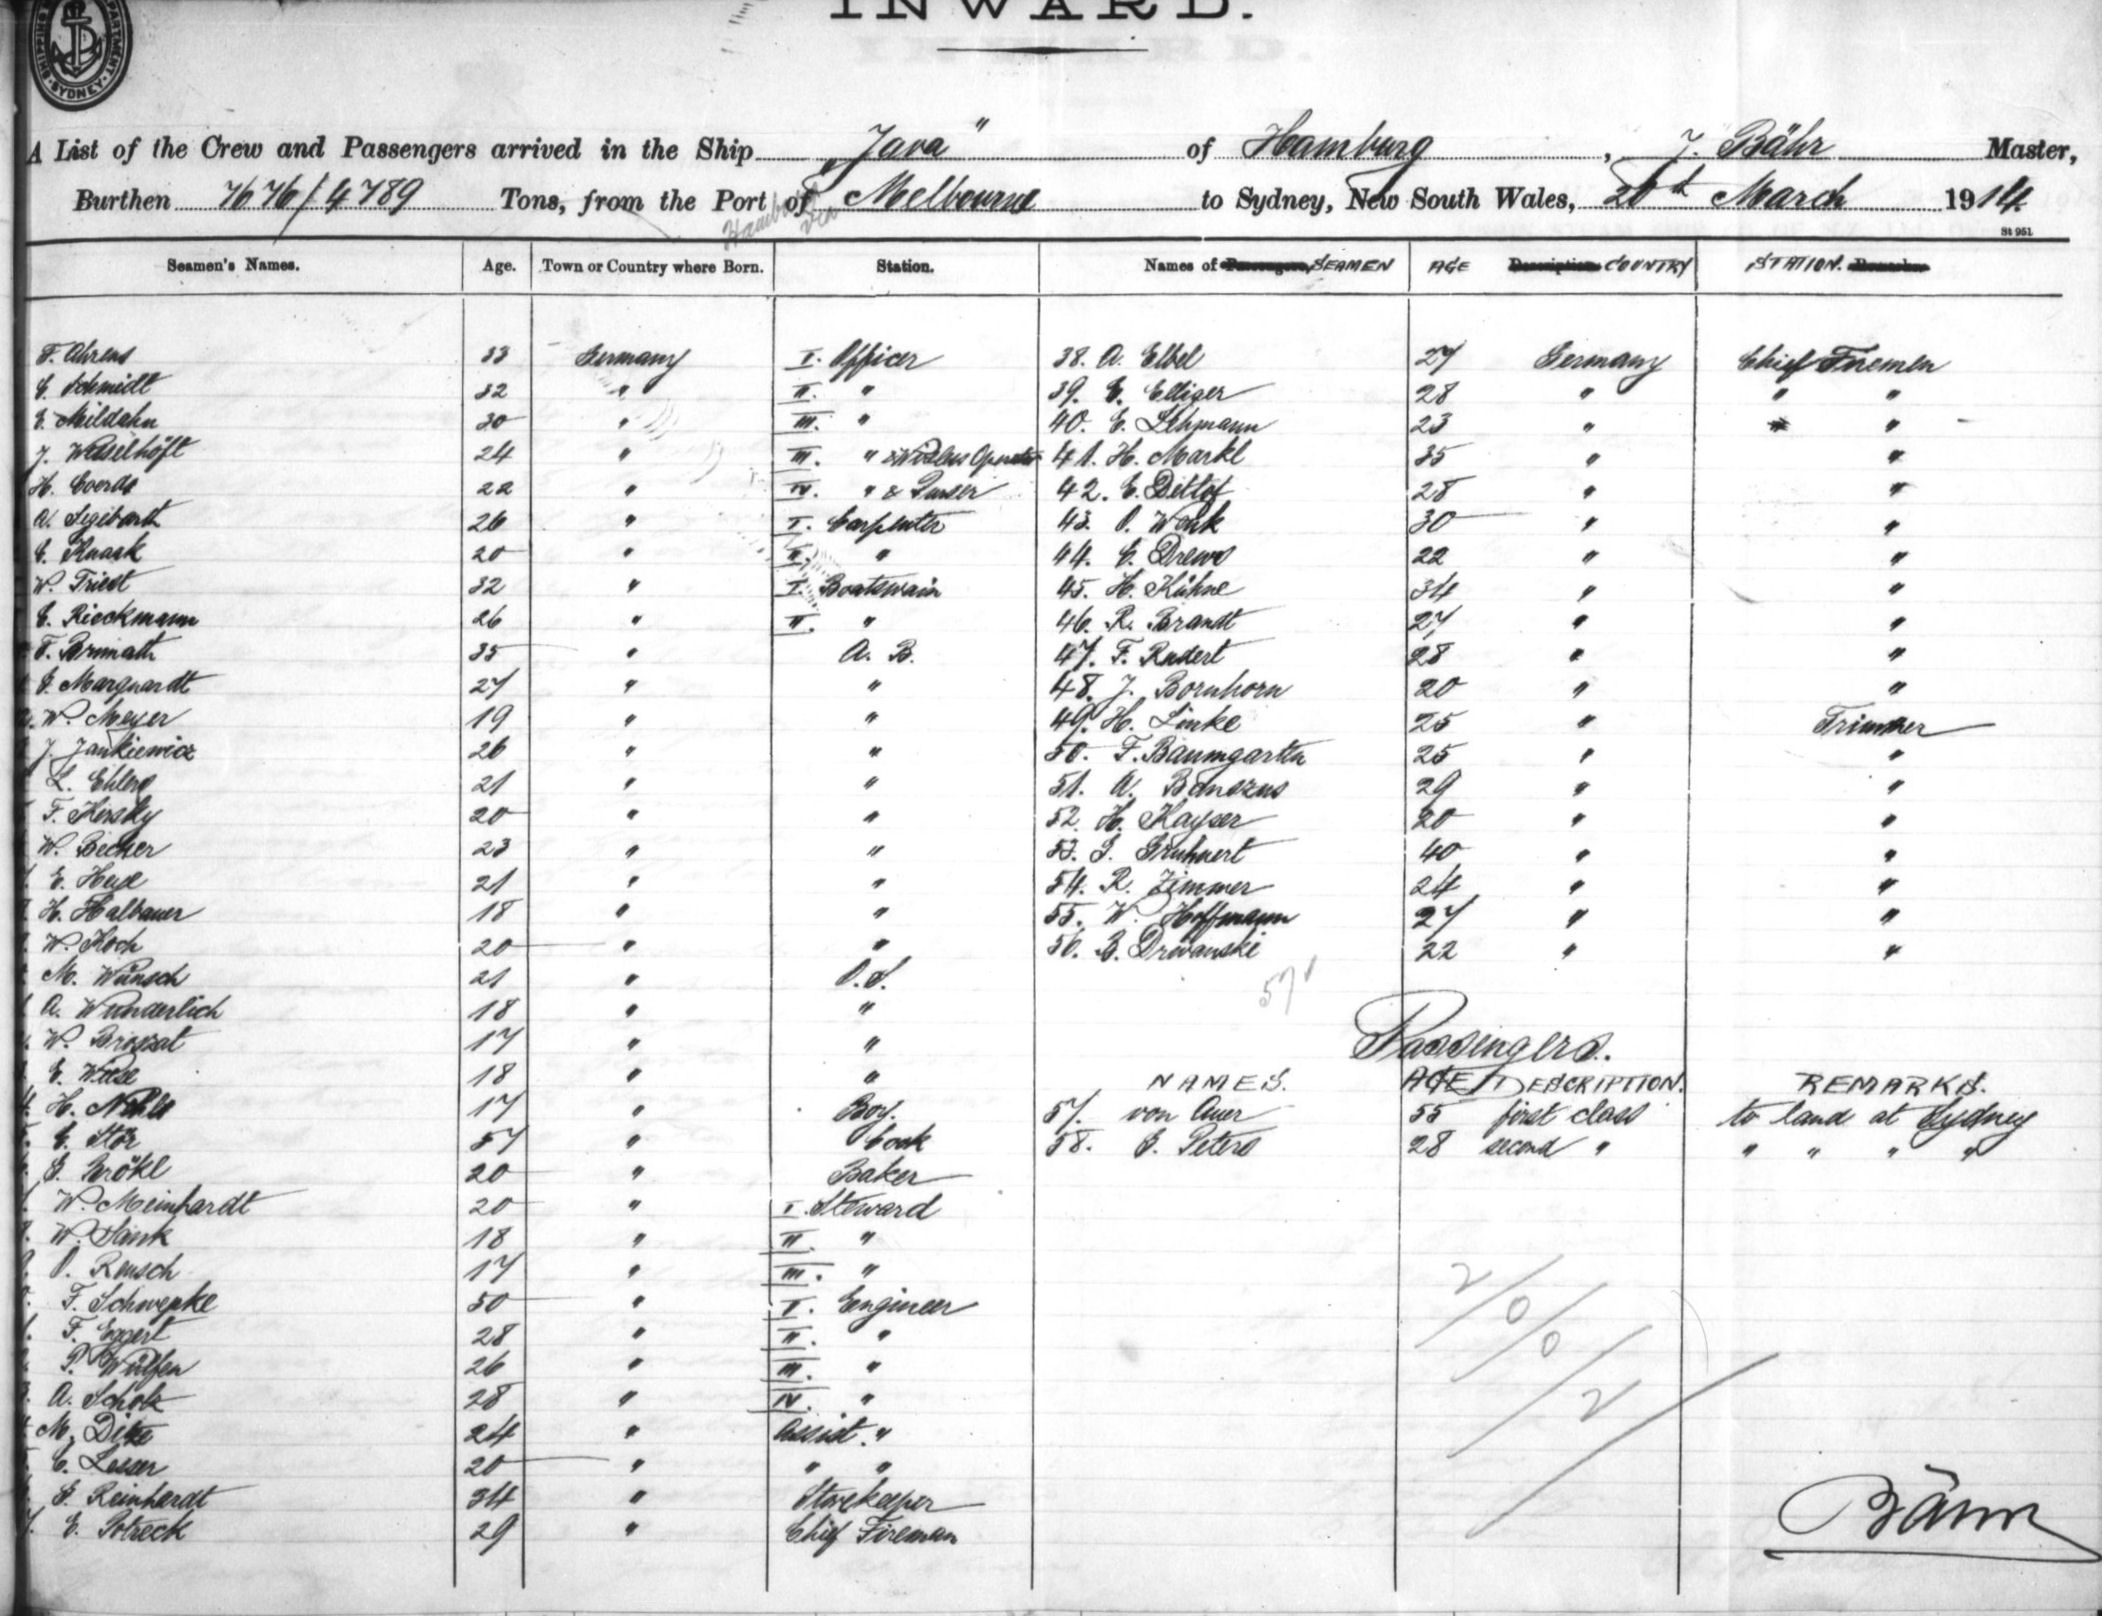 INWARD.
SHIPPING DEPARTMENT SYDNEY
A List of the Crew and Passengers arrived in the Ship „Java" of Hamburg, J. Bähr Master,
Burthen 7676/4789 Tons, from the Port of Melbourne to Sydney, New South Wales, 20th March 1914.
Hamburg via
St 951
Seamen's Names. Age. Town or Country where Born. Station. Names of Passengers, SEAMEN AGE Description COUNTRY STATION. Remarks
F. Ahrens 33 Germany I. Officer 38. A. Elbel 27 Germany Chief Firemen
C. Schmidt 32 " II. " 39. E. Elliger 28 " " "
E. Mildahn 30 " III. " 40. E. Lehmann 23 " "
J. Wesselhöft 24 " III. " & Wireless Operator 41. H. Markl 35 " "
H. Coerds 22 " IV. " & Purser 42. E. Dettlof 28 " "
A. Segebarth 26 " I. Carpenter 43. O. Wonk 30 " "
E. Knaak 20 " II. " 44. E. Drews 22 " "
W. Triest 32 " I. Boatswain 45. H. Kühne 34 " "
E. Rieckmann 26 " II. " 46. R. Brandt 27 " "
F. Bermath 35 " A. B. 47. F. Rudert 28 " "
G. Marquardt 27 " " 48. J. Bornhorn 20 " "
W. Meyer 19 " " 49. H. Linke 25 " Trimmer
J. Jankiewicz 26 " " 50. F. Baumgarten 25 " "
L. Ehlers 21 " " 51. A. Banszus 29 " "
F. Kersky 20 " " 52. H. Kayser 20 " "
W. Becker 23 " " 53. G. Gruhnert 40 " "
E. Heye 21 " " 54. R. Zimmer 24 " "
H. Halbauer 18 " " 55. W. Hoffmann 27 " "
W. Koch 20 " " 56. B. Drewanski 22 " "
M. Wünsch 21 " O.S. 57
A. Wunderlich 18 " "
W. Broszat 17 " " Passengers.
E. Wiese 18 " " NAMES. AGE DESCRIPTION. REMARKS.
H. 17 " Boy. 57. von Auer 55 first class to land at Sydney
E. Stör 57 " Cook 58. G. Peters 28 second " " " " "
G. Brökl 20 " Baker
W. Meinhardt 20 " I. Steward
W. Sank 18 " II. "
O. Rensch 17 " III. "
F. Schwepke 50 " I. Engineer
F. Eggert 28 " II. "
P. Wülfen 26 " III. "
A. Scholz 28 " IV. "
M. Ditze 24 " Assist. "
C. Lesser 20 " " "
G. Reinhardt 34 " Storekeeper
E. Potreck 29 " Chief Fireman
2/0/0/2
Bähr